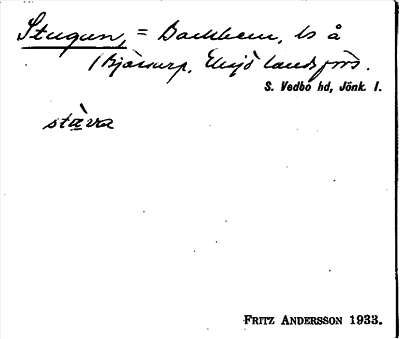 Stugun, = Backhem, ls å
Bjässarp, Eksjö landsförs.
S. Vedbo hd, Jönk. l.
stàva
FRITZ ANDERSSON 1933.